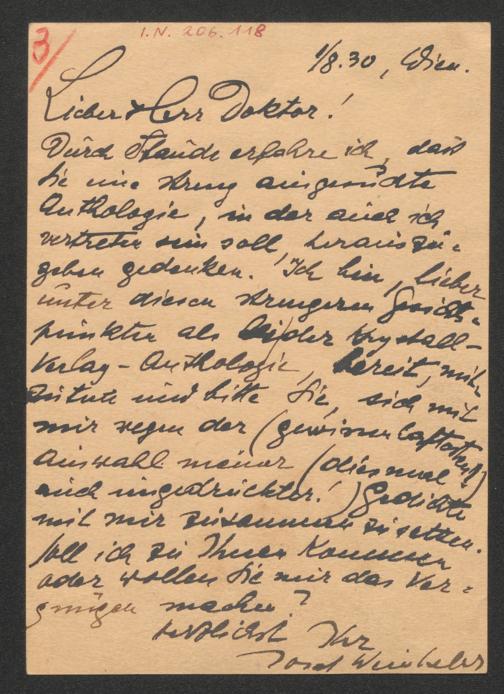 3
I.N. 206.118
1/8.30, Wien.
Lieber Herr Doktor!
Durch Staude erfahre ich, daß
Sie eine streng ausgesuchte
Anthologie, in der auch ich
vertreten sein soll, herauszu-
geben gedenken. Ich bin, lieber
unter diesen strengeren Gesichts-
punkten als bei der Krystall-
Verlag-Anthologie, bereit, mit-
zutun und bitte Sie, sich mit
mir wegen der (gewissenhaftesten!)
Auswahl meiner (diesmal
auch ungedruckter!) Gedichte
mit mir zusammen zu setzen.
Soll ich zu Ihnen kommen
oder wollen Sie mir das Ver-
gnügen machen?
herzlichst Ihr
Josef